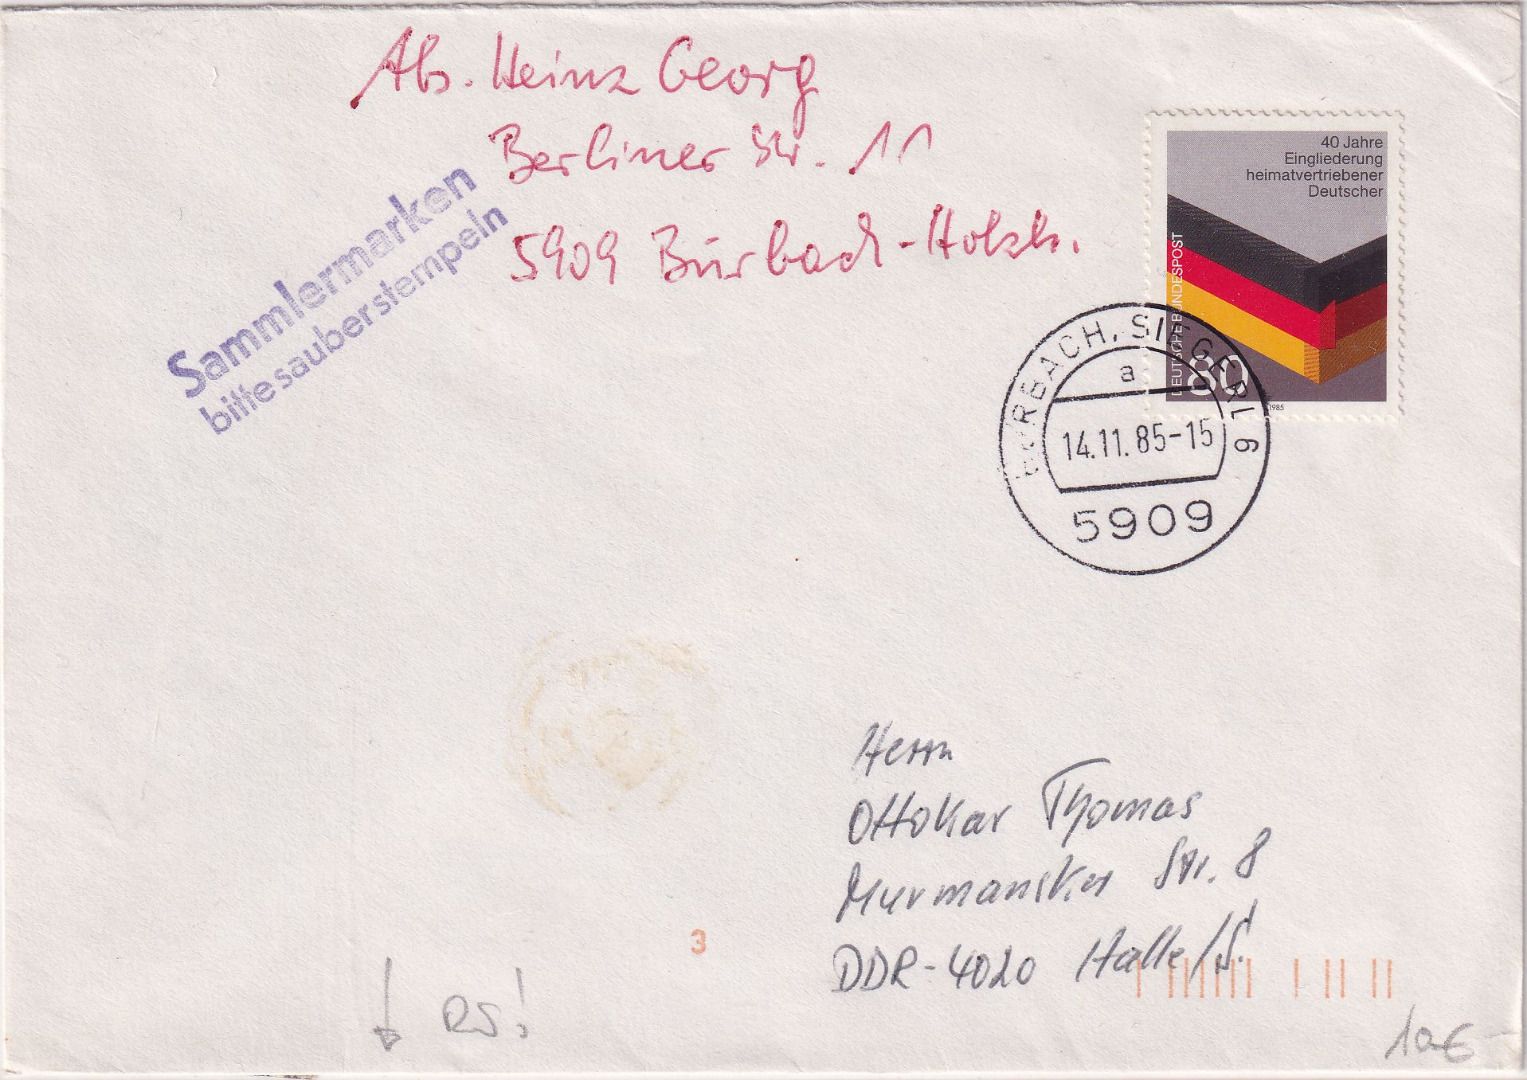 Abs. Heinz Georg
Berliner Str. 11
5909 Burbach-Holzh.
Sammlermarken
bitte sauber stempeln
40 Jahre
Eingliederung
heimatvertriebener
Deutscher
DEUTSCHE BUNDESPOST
80
1985
BURBACH, SIEGERL 6
a
14.11.85-15
5909
Herrn
Ottokar Thomas
Murmansker Str. 8
DDR-4020 Halle/S.
3
RS!
10€